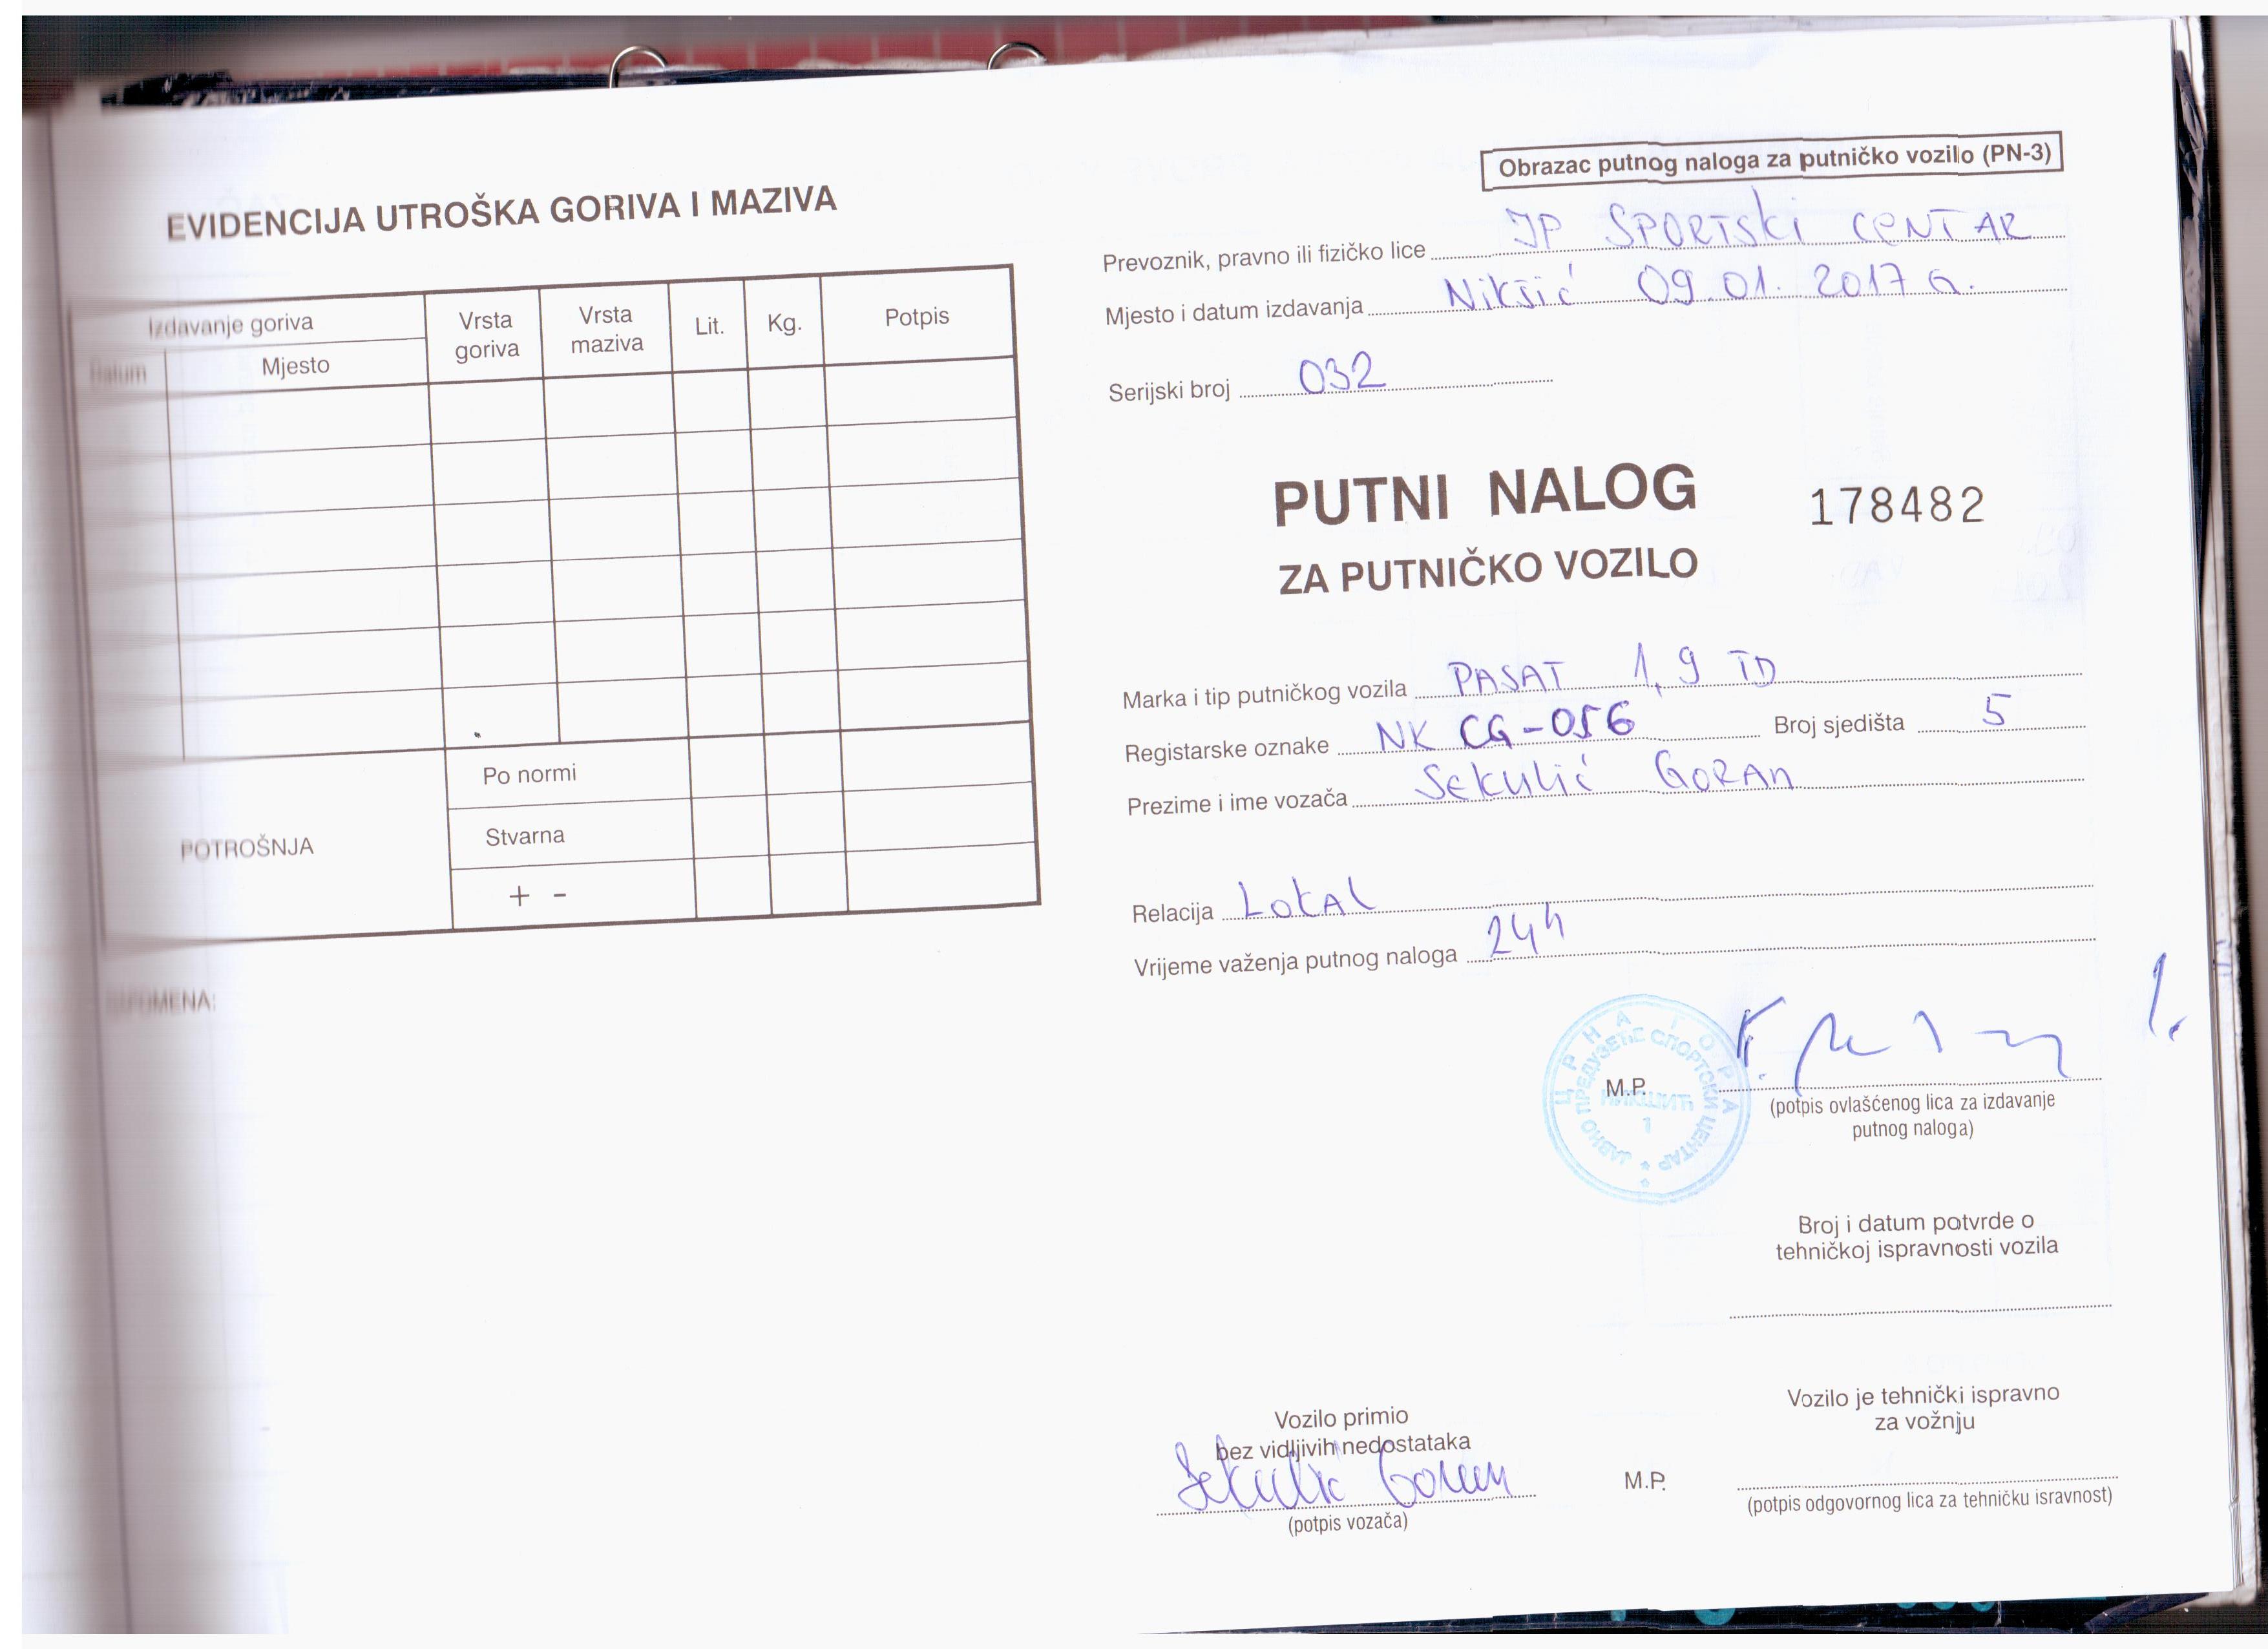 EVIDENCIJA UTROŠKA GORIVA I MAZIVA
Izdavanje goriva
Datum
Mjesto
Vrsta goriva
Vrsta maziva
Lit.
Kg.
Potpis
POTROŠNJA
Po normi
Stvarna
+ -
Obrazac putnog naloga za putničko vozilo (PN-3)
Prevoznik, pravno ili fizičko lice JP SPORTSKI CENTAR
Mjesto i datum izdavanja Nikšić 09.01.2017 G.
Serijski broj 032
PUTNI NALOG 178482
ZA PUTNIČKO VOZILO
Marka i tip putničkog vozila PASAT 1,9 TD
Registarske oznake NK CG-056 Broj sjedišta 5
Prezime i ime vozača Sekulić GORAn
Relacija LOKAL
Vrijeme važenja putnog naloga 24h
ЦРНА ГОРА
ЈАВНО ПРЕДУЗЕЋЕ СПОРТСКИ ЦЕНТАР
НИКШИЋ
1
M.P.
(potpis ovlašćenog lica za izdavanje
putnog naloga)
Broj i datum potvrde o
tehničkoj ispravnosti vozila
Vozilo je tehnički ispravno
za vožnju
Vozilo primio
bez vidljivih nedostataka
Sekulić Goran
(potpis vozača)
M.P.
(potpis odgovornog lica za tehničku isravnost)